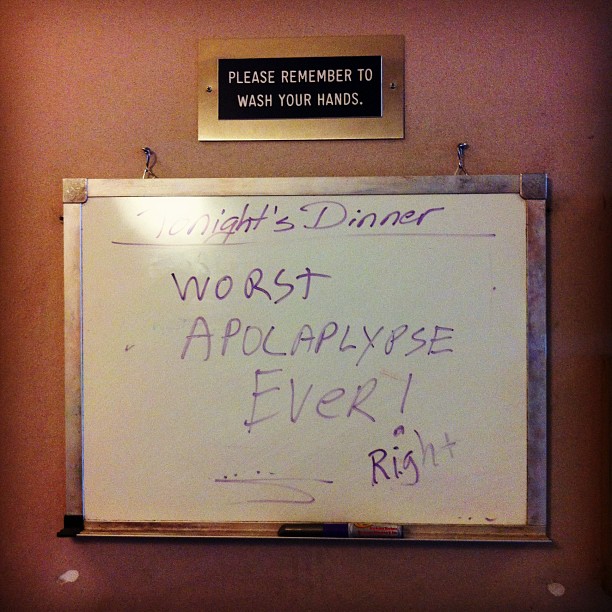 PLEASE REMEMBER TO
WASH YOUR HANDS.
Tonight's Dinner
WORST
APOLAPLYPSE
EVER!
Right